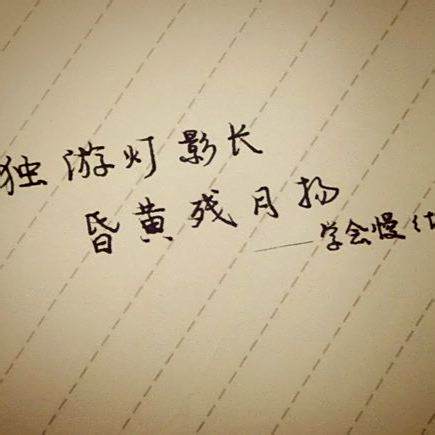 独游灯影长
昏黄残月扬
——学会慢